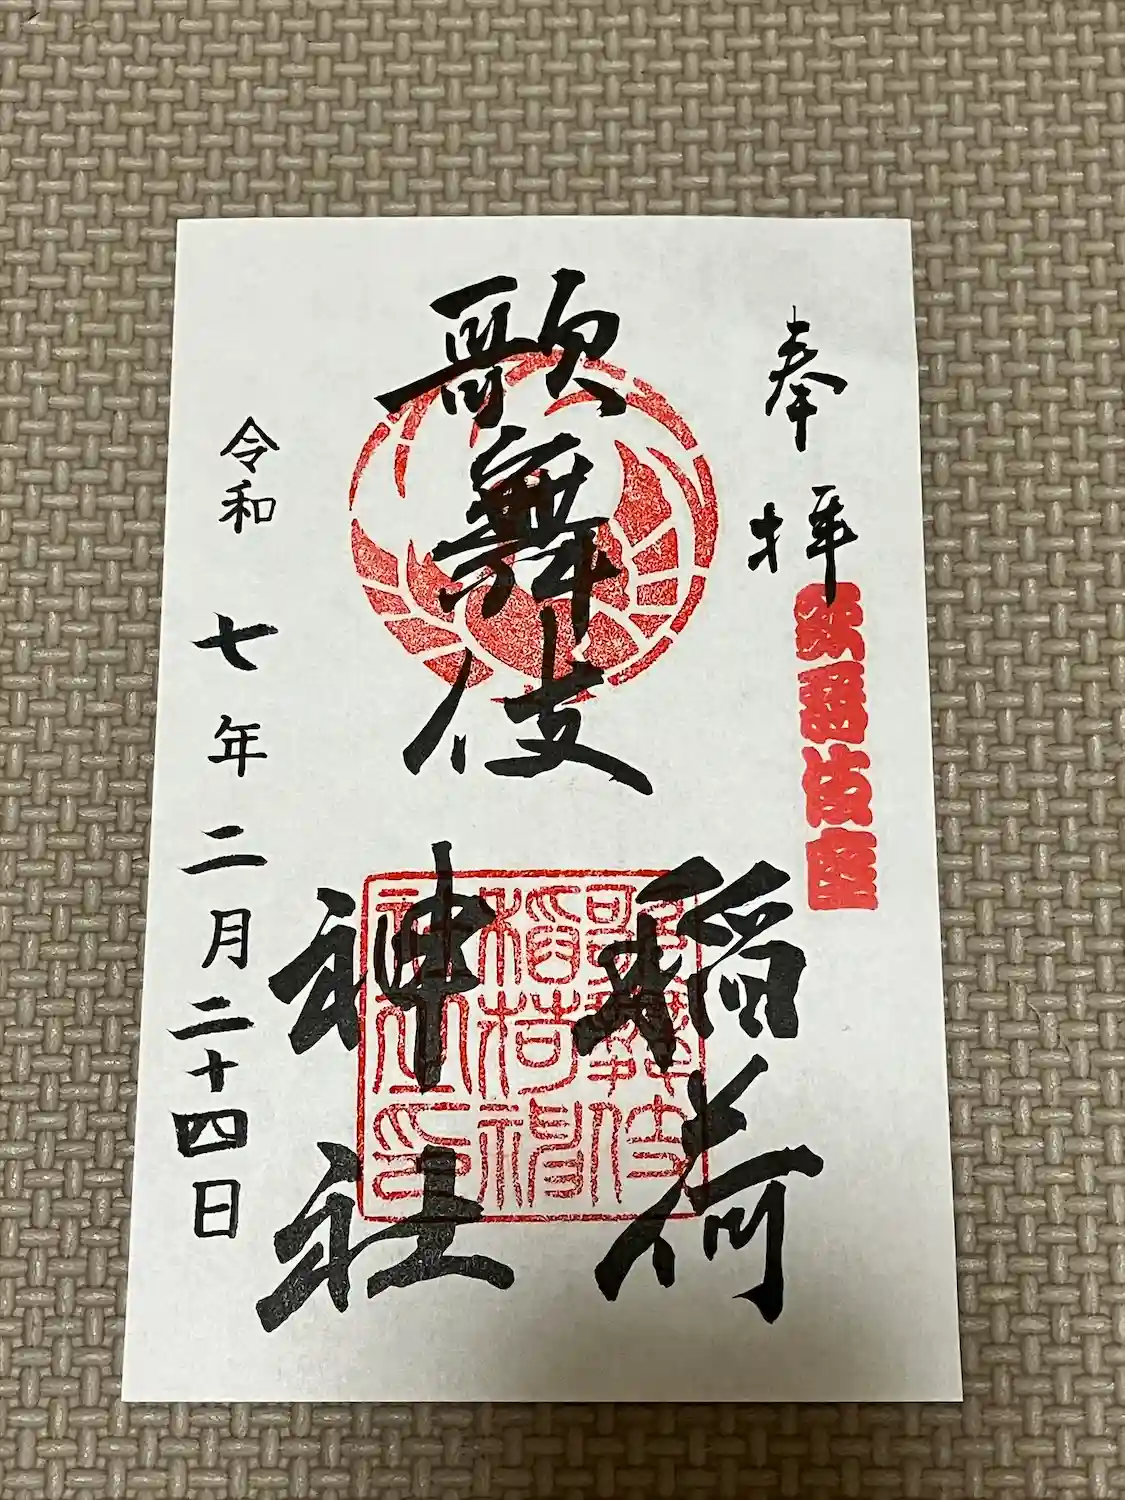 奉拝
歌舞伎座
歌舞伎
稲荷
神社
歌舞伎
稲荷神
社之印
令和七年二月二十四日